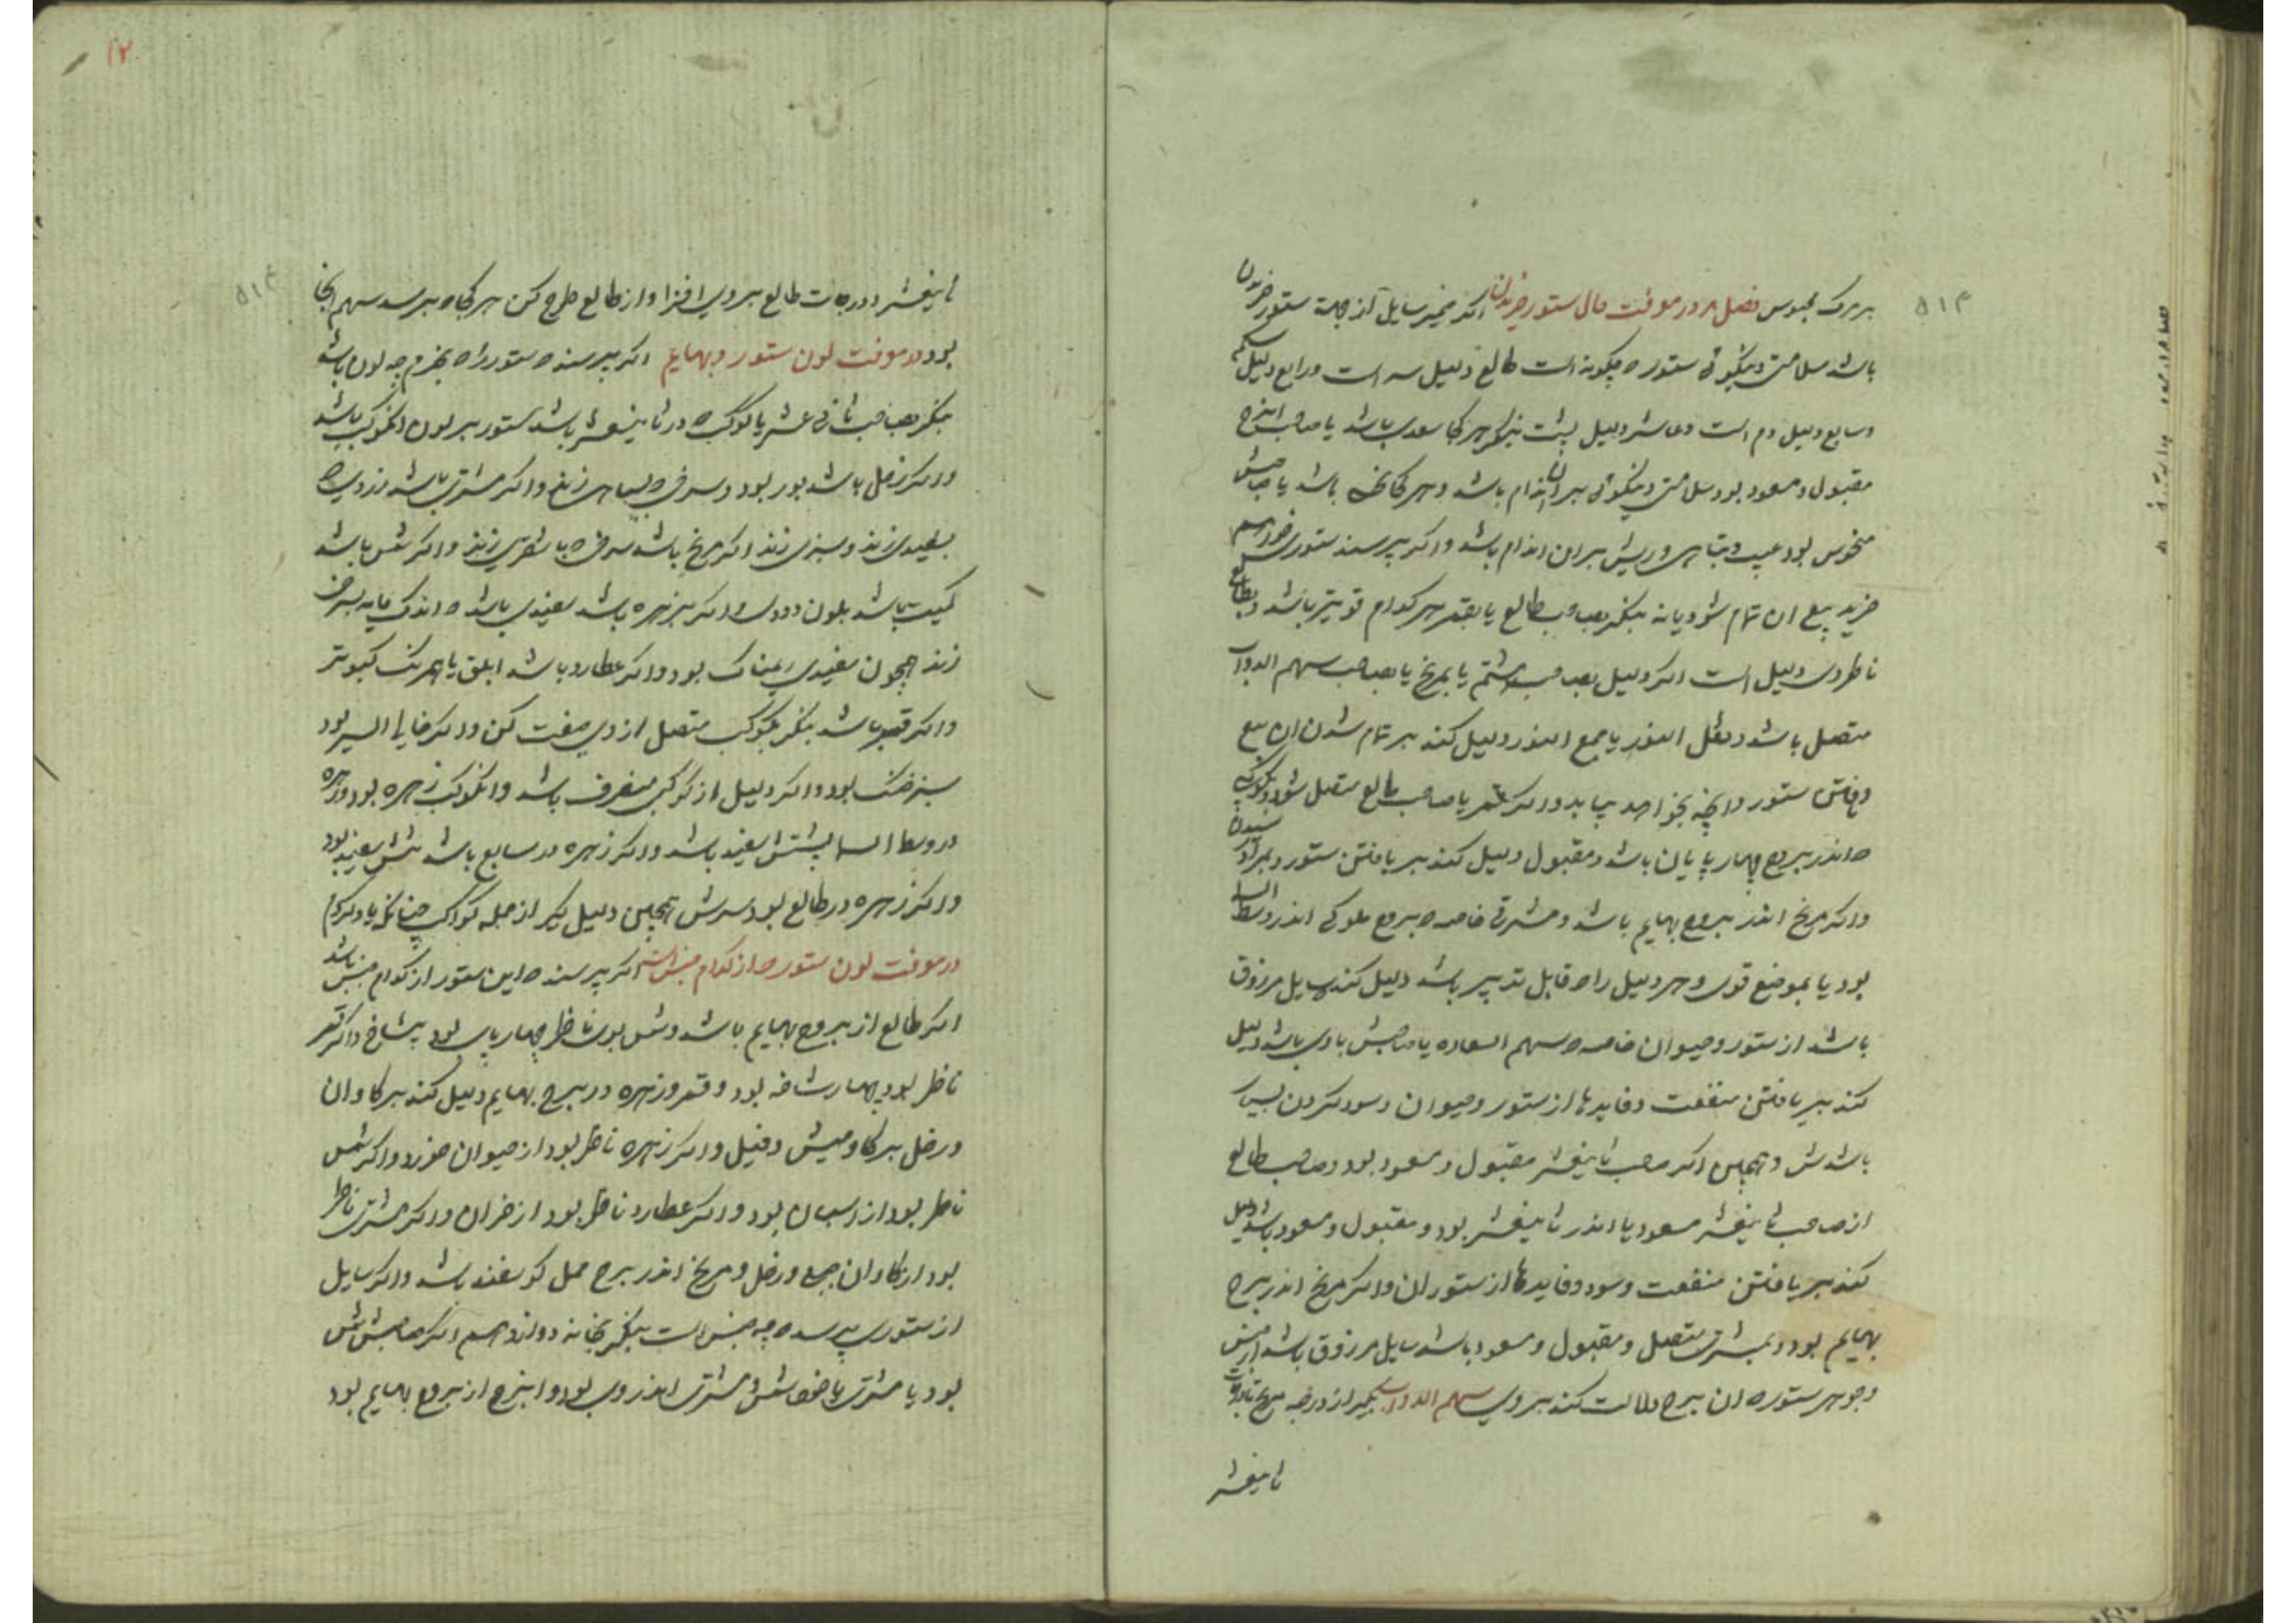 بر مرگ محبوس فصل در معرفت حال ستور خریدن اگر ضمیر سایل از جهة ستور خریدن
باشد سلامتی و نیکوئی ستور که چگونه است طالع دلیل سر است و رابع دلیل
وسابع دلیل دم است و عاشر دلیل پشت بنگر هر کجا سعدی باشد یا صاحب انبرج
مقبول و مسعود بود سلامتی و نیکوئی بر ان اندام باشد و هر کجا نحس باشد یا صاحبش
منحوس بود عیب و تباهی و ریش بر ان اندام باشد و اگر پرسند ستوری خواهم
خرید بیع ان تمام شود یا نه بنگر بصاحب طالع یا بقمر هر کدام قوی‌تر باشد و بطالع
ناظر وی دلیل است اگر دلیل بصاحب هشتم یا بمریخ یا بصاحب سهم الدواب
متصل باشد و نقل النور یا جمع النور دلیل کند بر تمام شدن ان بیع
و یافتن ستور و انچه بخواهد بیابد و اگر قمر یا صاحب طالع متصل شود بکوکبی
که اندر بروج چهارپایان باشد و مقبول دلیل کند بر یافتن ستور و بمراد رسیدن
و اگر مریخ اندر بروج بهایم باشد و مشرقی خاصه بروج ملوکی اندر وسط السما
بود یا بموضع قوی و هر دلیل را که قابل تدبیر باشد دلیل کند سایل مرزوق
باشد از ستور و حیوان خاصه که سهم السعاده یا صاحبش با وی باشد دلیل
کند بر یافتن منفعت و فایدها از ستور و حیوان و سود کردن بسیار
باشدش و همچنین اگر صاحب ثانیعشر مقبول و مسعود بود و صاحب طالع
از صاحب ثانیعشر مسعود یا اندر ثانیعشر بود و مقبول و مسعود باشد دلیل
کند بر یافتن منفعت و سود و فایدها از ستوران و اگر مریخ اندر برج
بهایم بود و بمشتری متصل و مقبول و مسعود باشد سایل مرزوق باشد از جنس
و جوهر ستور که ان برج دلالت کند بر وی سهم الدواب بگیر از درجه مریخ تا درجات
ثانیعشر
ثانیعشر و درجات طالع بر وی افزا و از طالع طرح کن هر کجا که برسد سهم انجا
بود در معرفت لون ستور و بهایم اگر پرسند که ستور را که بخرم چه لون باشد
بنگر بصاحب ثانی عشر یا کوکب که در ثانیعشر باشد ستور بر لون انکوکب باشد
و اگر زحل باشد بور بود و سرخی که بسیاهی زند و اگر مشتری باشد زردی که
بسفیدی زند و سبزی زند اگر مریخ باشد سرخی که باشقری زند و اگر شمس باشد
کمیت باشد بلون دودی و اگر زهره باشد سفیدی باشد که اندک مایه بسرخی
زند همچون سفیدی بود و اگر عطارد باشد ابلق یا همرنگ کبوتر
و اگر قمر باشد بنگر بکوکب متصل از وی صفت کن و اگر خالی السیر بود
سبز خنک بود و اگر دلیل از کوکبی منصرف باشد و انکوکب زهره بود و زهره
در وسط السما پشتش سفید باشد و اگر زهره در سابع باشد سفید بود
و اگر زهره در طالع بود سرش همچنین دلیل گیر از جمله کواکب چنانکه یاد کردم
در معرفت لون ستور که از کدام جنس است اگر پرسند که این ستور از کدام جنس باشد
اگر طالع از بروج بهایم باشد و شمس بوی ناظر چهارپای بود بیشاخ و اگر قمر
ناظر بود چهار شاخه بود و قمر و زهره در برج بهایم دلیل کند بر گاوان
و زحل بر گاومیش و فیل و اگر زهره ناظر بود از حیوان خورد و اگر شمس
ناظر بود از اسبان بود و اگر عطارد ناظر بود از خران و اگر مشتری ناظر
بود از گاوان و زحل و مریخ اندر برج حمل گوسفند باشد و اگر سایل
از ستوری پرسد که چه جنس است بنگر بخانه دوازدهم اگر صاحبش شمس
بود یا مشتری یا خود شمس و مشتری اندر وی بود و انبرج از بروج بهایم بود